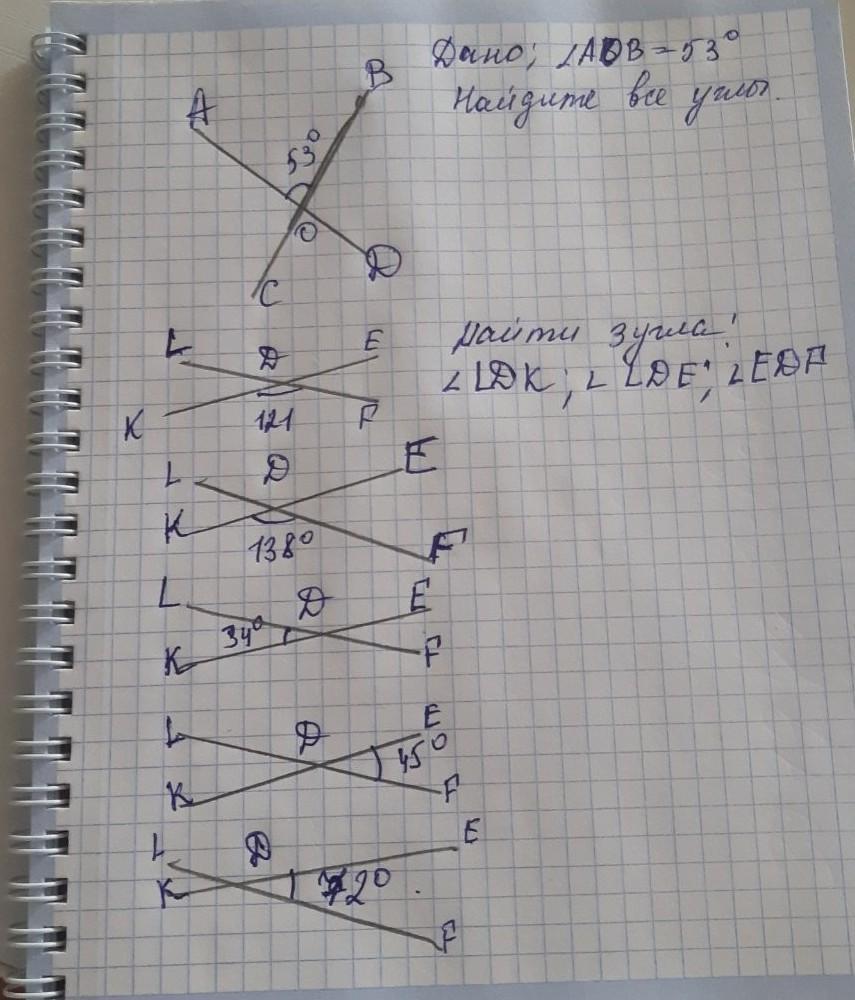 Дано; ∠AOB = 53°
Найдите все углы.
A
B
53°
O
D
C
Найти 3 угла:
∠LDK; ∠LDE; ∠EDF
L
D
E
K
121
F
L
D
E
K
138°
F
L
D
E
34°
K
F
L
D
E
45°
K
F
L
D
E
K
F